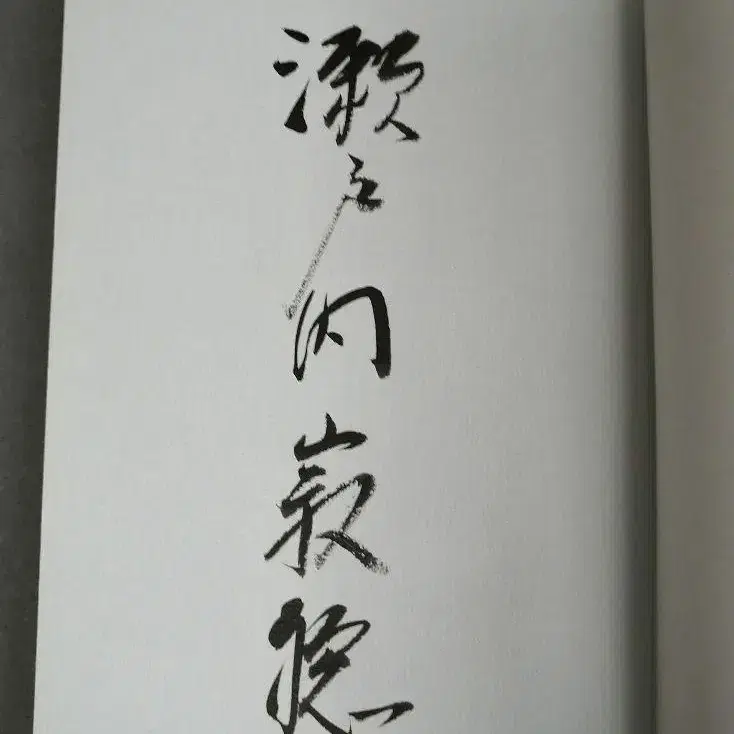 瀬戸内寂聴